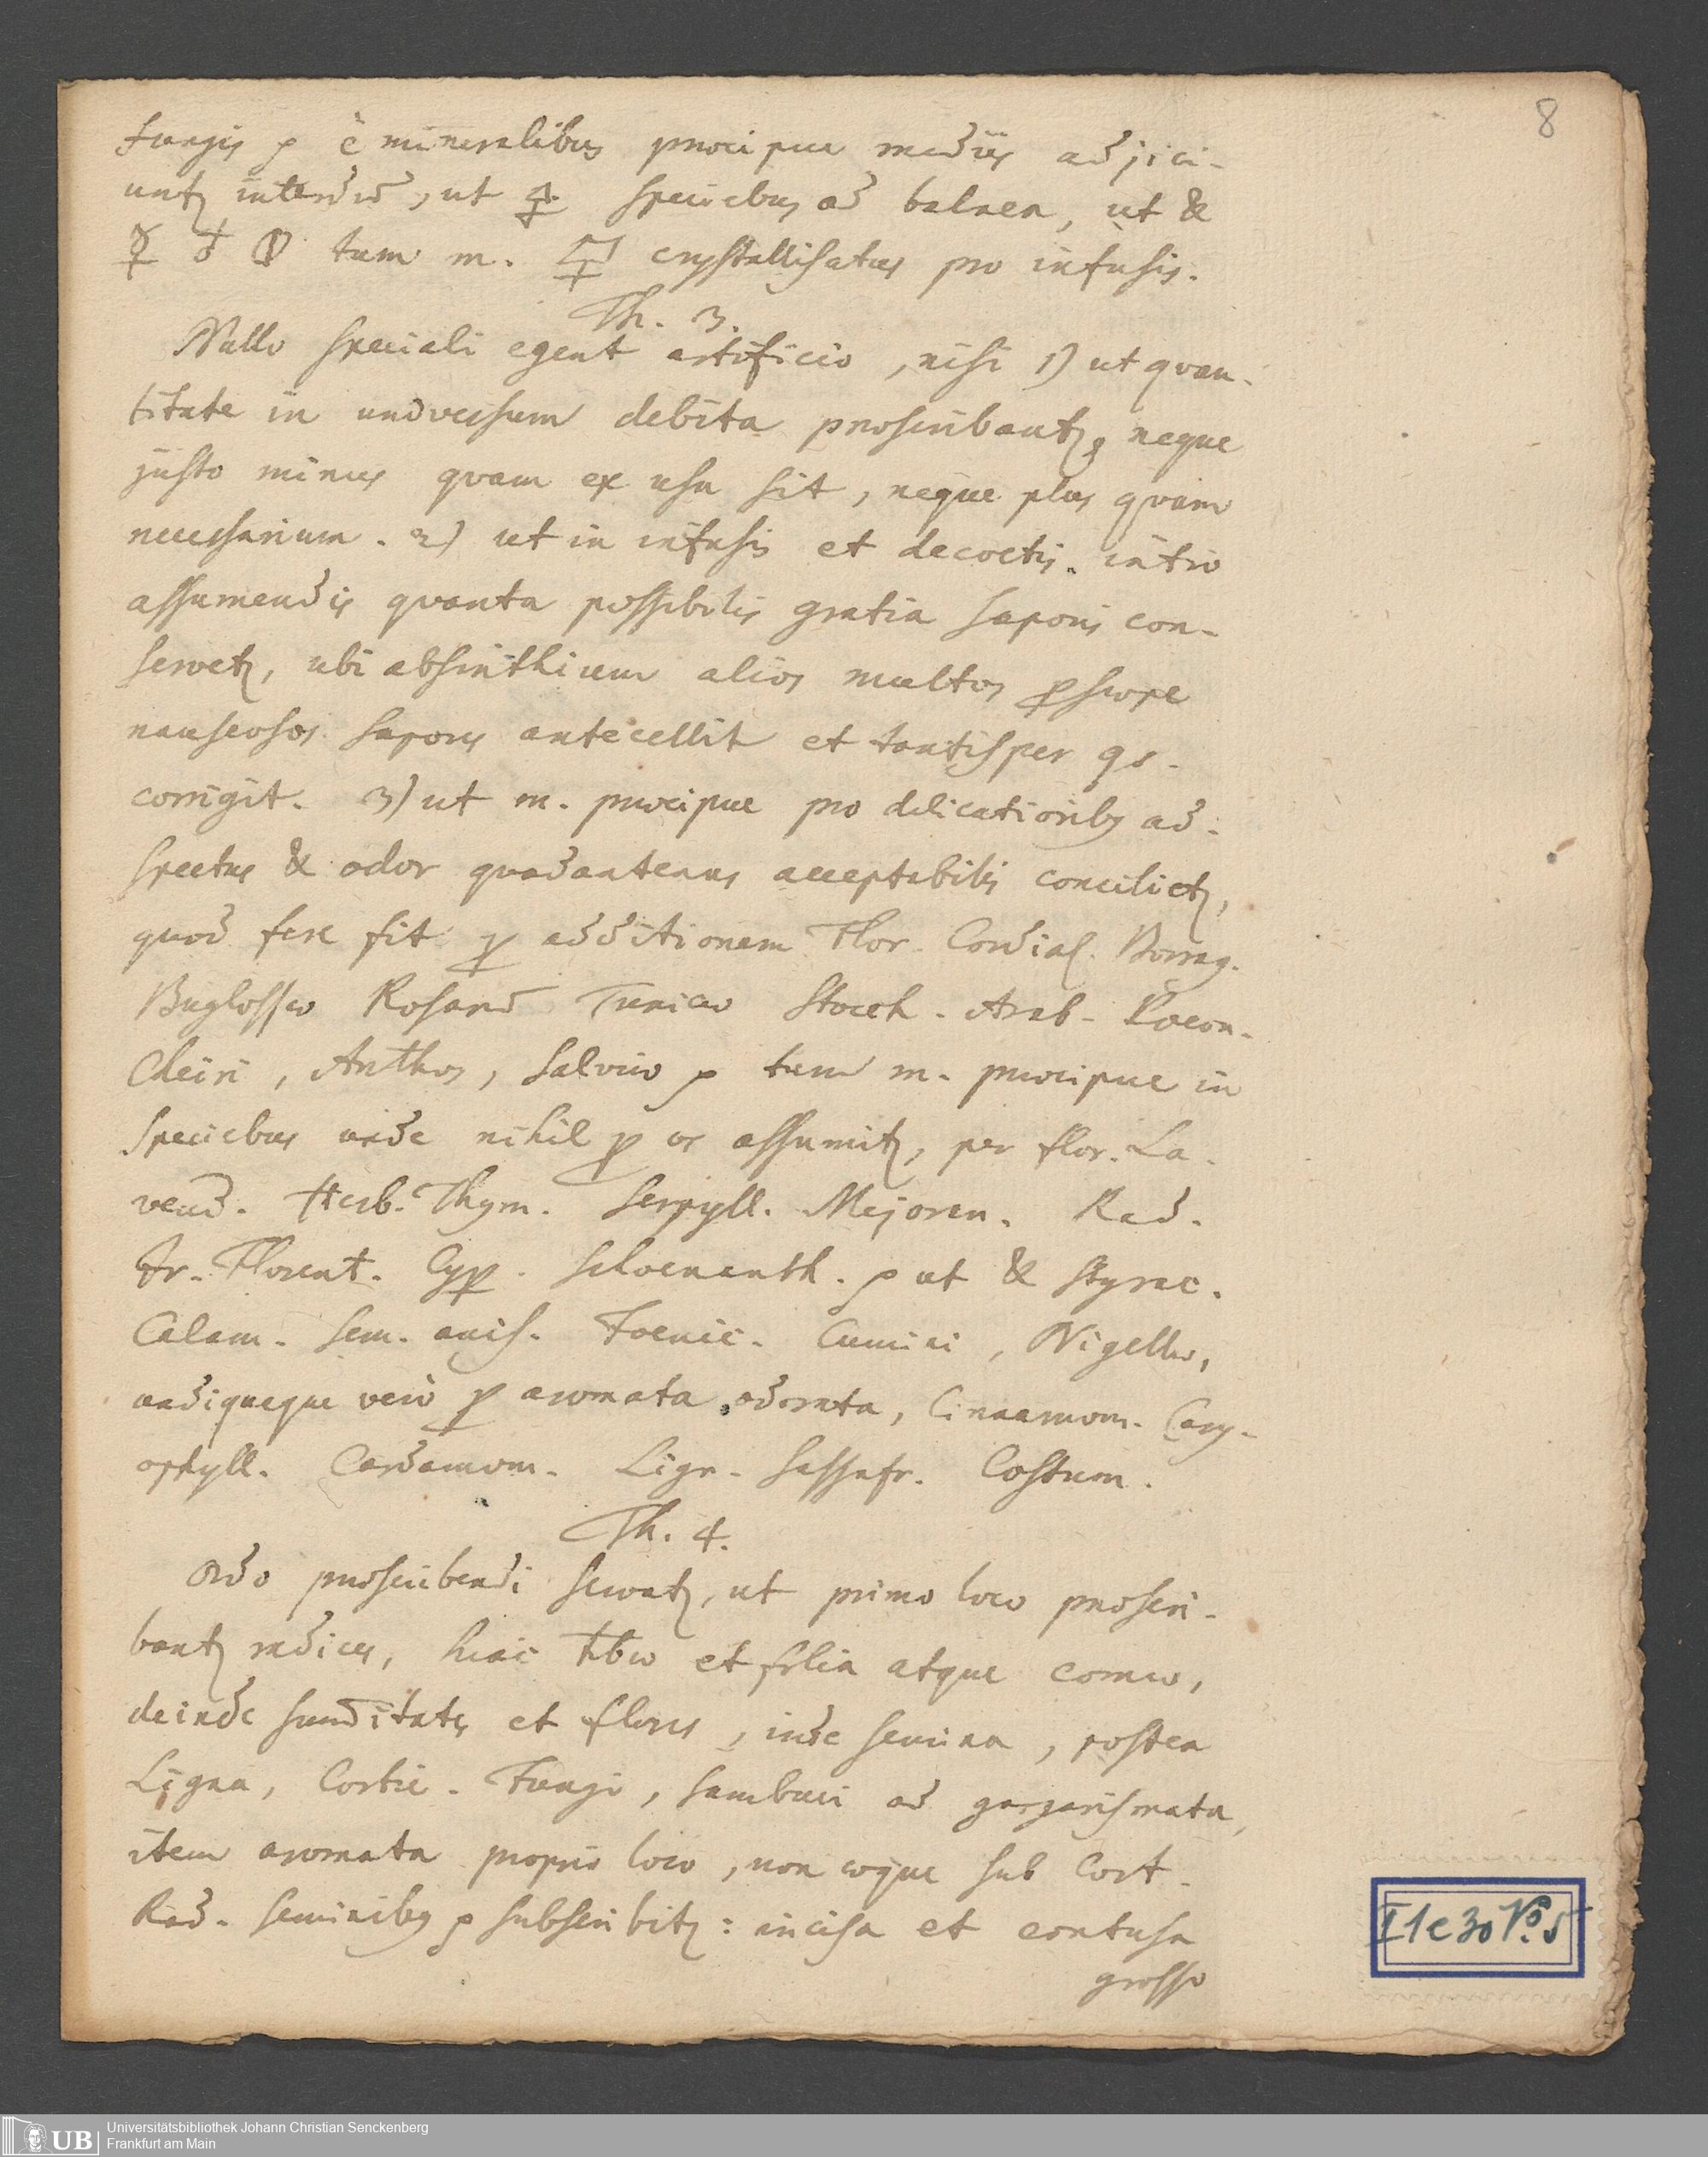 8
fungis p è mineralibus praecipue mediis adjici-
untur interdum, ut 🜍 speciebus ad balnea, ut &
☿ ♂ tum m. crystallisatus pro infusis.
Th. 3.
Nullo speciali egent artificio, nisi 1) ut quan-
titate in universum debita praescribantur neque
justo minus quam ex usu sit, neque plus quam
necessarium. 2) ut in infusis et decoctis intro
assumendis quanta possibilis gratia saporis con-
servetur, ubi absinthium alios multos saepe
nauseosos sapores antecellit et tantisper
corrigit. 3) ut m. praecipue pro delicatioribus ad-
spectus & odor quadantenus acceptabilis concilietur,
quod fere fit per additionem Flor. Cordial. Borrag.
Buglossae Rosarum Tunicae Stoech. Arab. Paeon.
Cheiri, Anthos, Salviae p tum m. praecipue in
speciebus unde nihil per os assumitur, per flor. La-
vend. Herb. Thym. Serpyll. Majoran. Rad.
Ir. Florent. Cyper. Schoenanth. p ut & Styrac.
Calam. Sem. anis. Foenic. Cumini, Nigellae,
undiqueque vero per aromata odorata, Cinnamom. Cary-
ophyll. Cardamom. Lign. Sassafr. Costum.
Th. 4.
Ordo praescribendi servatur, ut primo loco praescri-
bantur radices, hinc hbae et folia atque comae,
deinde sumitates et flores, inde semina, postea
Ligna, Cortic. Fungi, sambuci ad gargarismata,
item aromata proprio loco, non eoque sub Cort.
Rad. seminibus p subscribitur: incisa et contusa
grosso
I 1 e 30 No. 5
UB Universitätsbibliothek Johann Christian Senckenberg
Frankfurt am Main